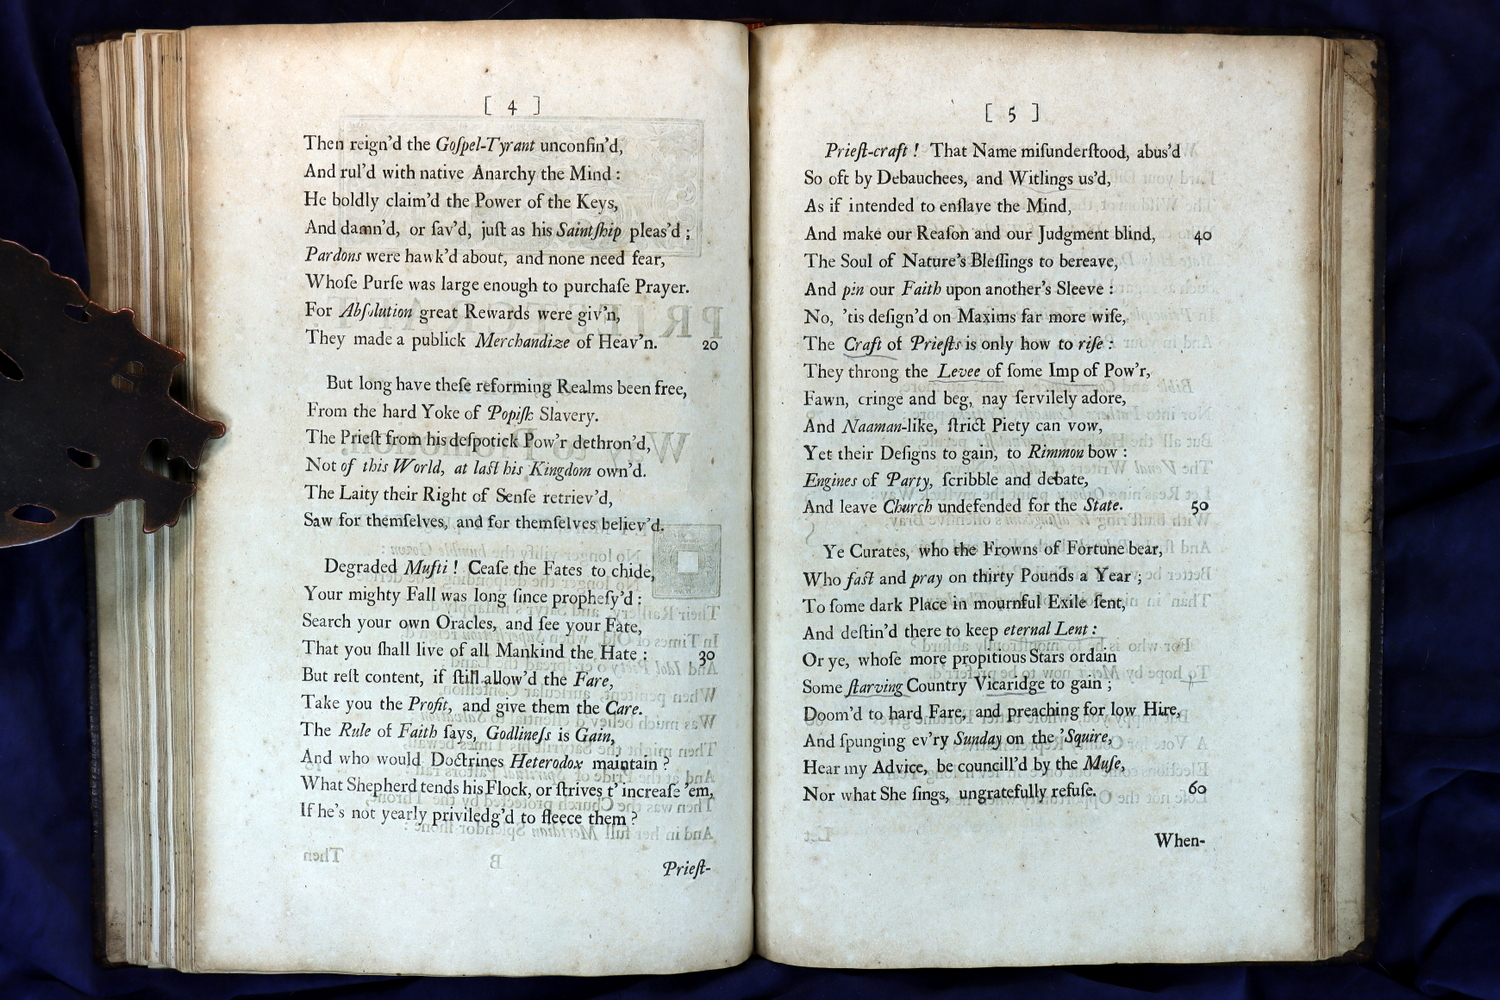 [ 4 ]
Then reign'd the Goſpel-Tyrant unconfin'd,
And rul'd with native Anarchy the Mind :
He boldly claim'd the Power of the Keys,
And damn'd, or ſav'd, juſt as his Saintſhip pleas'd ;
Pardons were hawk'd about, and none need fear,
Whoſe Purſe was large enough to purchaſe Prayer.
For Abſolution great Rewards were giv'n,
They made a publick Merchandize of Heav'n. 20
But long have theſe reforming Realms been free,
From the hard Yoke of Popiſh Slavery.
The Prieſt from his deſpotick Pow'r dethron'd,
Not of this World, at laſt his Kingdom own'd.
The Laity their Right of Senſe retriev'd,
Saw for themſelves, and for themſelves believ'd.
Degraded Mufti ! Ceaſe the Fates to chide,
Your mighty Fall was long ſince propheſy'd :
Search your own Oracles, and ſee your Fate,
That you ſhall live of all Mankind the Hate : 30
But reſt content, if ſtill allow'd the Fare,
Take you the Profit, and give them the Care.
The Rule of Faith ſays, Godlineſs is Gain,
And who would Doctrines Heterodox maintain ?
What Shepherd tends his Flock, or ſtrives t' increaſe 'em,
If he's not yearly priviledg'd to fleece them ?
Prieſt-
[ 5 ]
Prieſt-craft ! That Name miſunderſtood, abus'd
So oft by Debauchees, and Witlings us'd,
As if intended to enſlave the Mind,
And make our Reaſon and our Judgment blind, 40
The Soul of Nature's Bleſſings to bereave,
And pin our Faith upon another's Sleeve :
No, 'tis deſign'd on Maxims far more wiſe,
The Craft of Prieſts is only how to riſe :
They throng the Levee of ſome Imp of Pow'r,
Fawn, cringe and beg, nay ſervilely adore,
And Naaman-like, ſtrict Piety can vow,
Yet their Deſigns to gain, to Rimmon bow :
Engines of Party, ſcribble and debate,
And leave Church undefended for the State. 50
Ye Curates, who the Frowns of Fortune bear,
Who faſt and pray on thirty Pounds a Year ;
To ſome dark Place in mournful Exile ſent,
And deſtin'd there to keep eternal Lent :
Or ye, whoſe more propitious Stars ordain
Some ſtarving Country Vicaridge to gain ;
Doom'd to hard Fare, and preaching for low Hire,
And ſpunging ev'ry Sunday on the 'Squire,
Hear my Advice, be councill'd by the Muſe,
Nor what She ſings, ungratefully refuſe. 60
When-